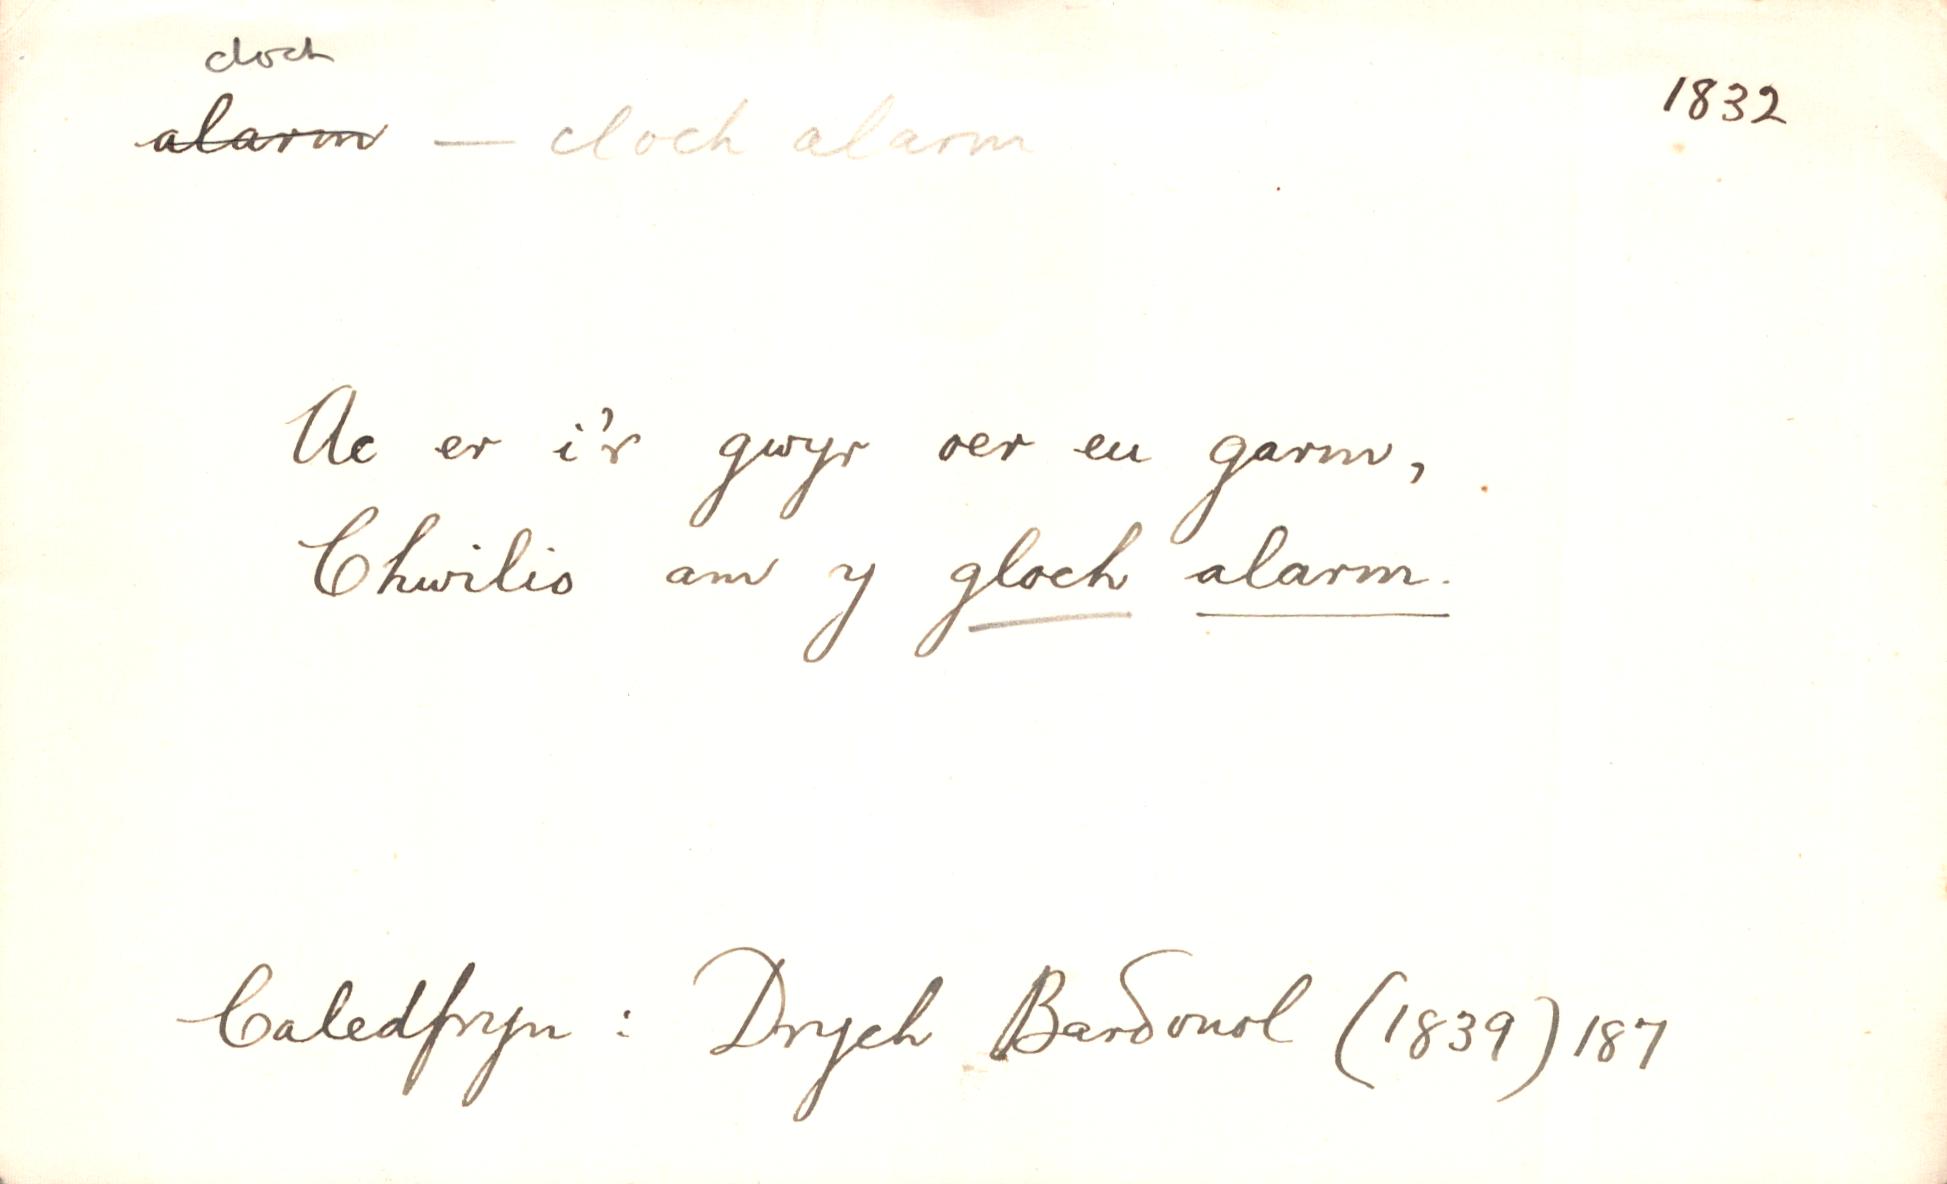 cloch
alarm — cloch alarm
1832
Ac er i'r gwyr oer eu garm,
Chwilio am y gloch alarm.
Caledfryn : Drych Barδonol (1839) 187